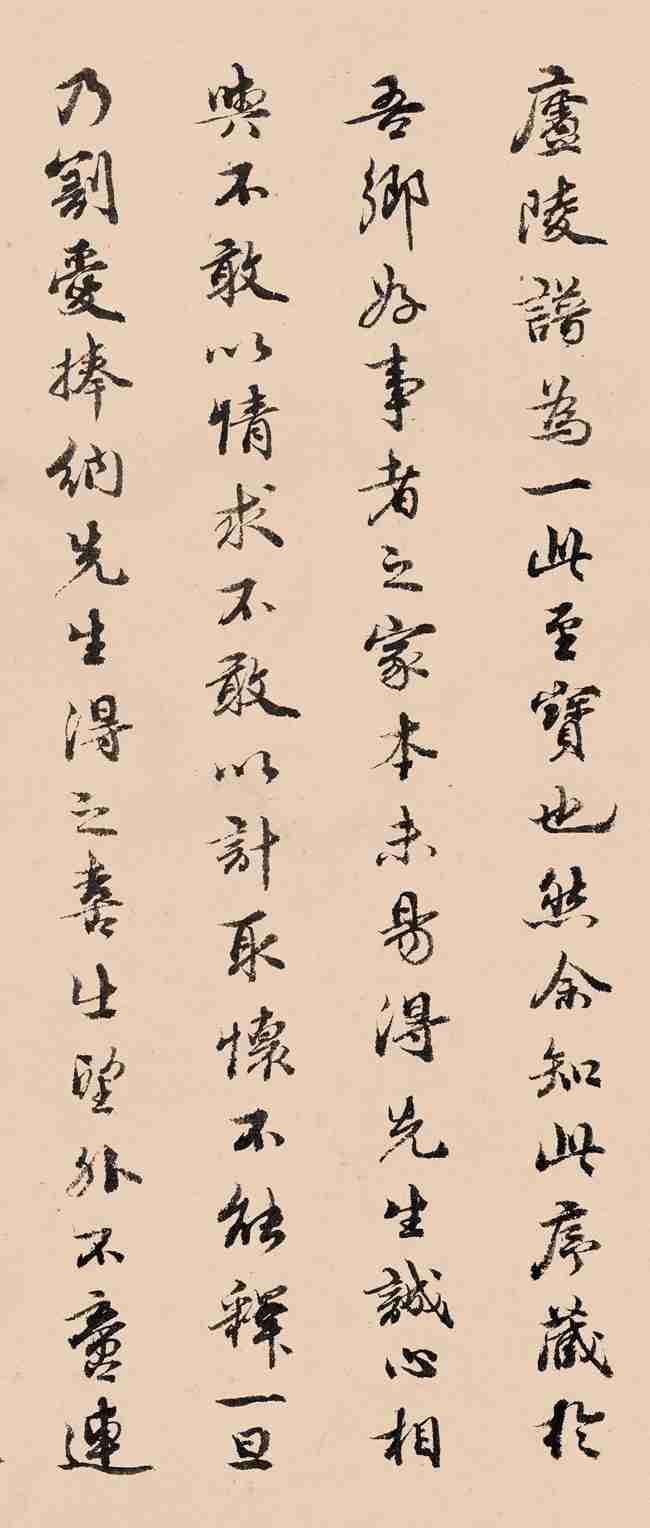 廬陵譜為一此至寶也然余知此序藏於
吾鄉好事者之家本未易得先生誠心相
與不敢以情求不敢以計取懷不能釋一旦
乃割愛捧納先生得之喜出望外不啻連